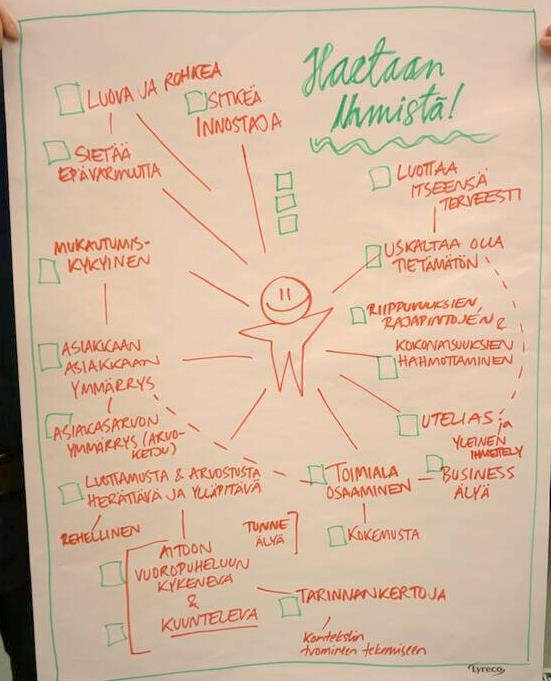 Haetaan
Ihmistä!
LUOVA JA ROHKEA
SITKEÄ
INNOSTAJA
SIETÄÄ
EPÄVARMUUTTA
LUOTTAA
ITSEENSÄ
TERVEESTI
MUKAUTUMIS-
KYKYINEN
USKALTAA OLLA
TIETÄMÄTÖN
RIIPPUVUUKSIEN,
RAJAPINTOJEN &
KOKONAISUUKSIEN
HAHMOTTAMINEN
ASIAKKAAN
ASIAKKAAN
YMMÄRRYS
ASIAKASARVON
YMMÄRRYS (ARVO-
KETJU)
UTELIAS ja
YLEINEN
IHMETTELY
LUOTTAMUSTA & ARVOSTUSTA
HERÄTTÄVÄ JA YLLÄPITÄVÄ
TOIMIALA
OSAAMINEN
BUSINESS
ÄLYÄ
REHELLINEN
TUNNE
ÄLYÄ
KOKEMUSTA
AITOON
VUOROPUHELUUN
KYKENEVÄ
&
KUUNTELEVA
TARINNANKERTOJA
Kontekstin
tuominen tekemiseen
Lyreco